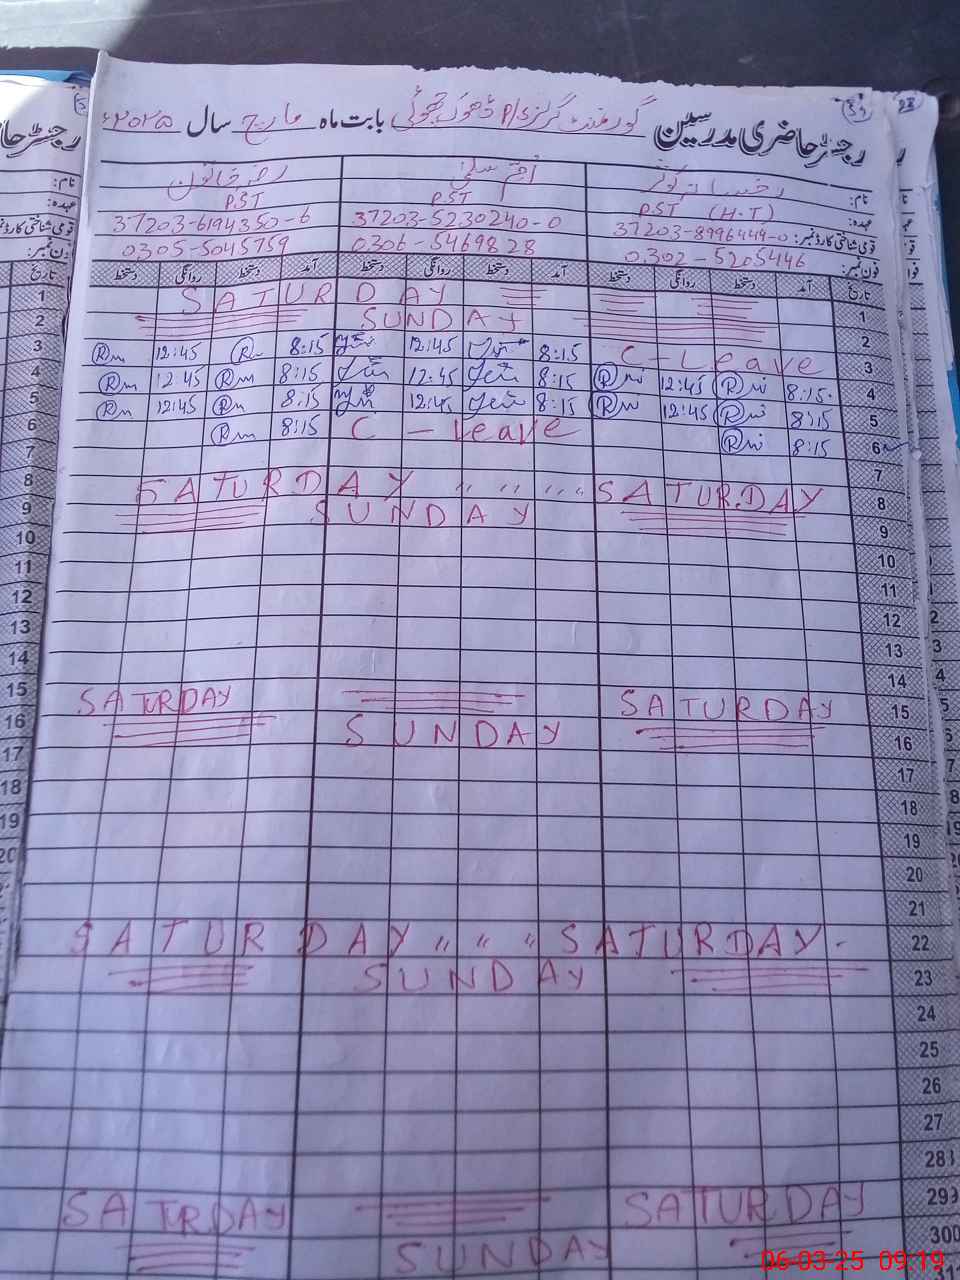 رجسٹر حاضری مدرسین گورنمنٹ گرلز P/S ڈھوک بابت ماہ مارچ سال ۲۰۲۵ء
نام: رخسانہ کوثر
عہدہ: PST (H.T) PST PST
قومی شناختی کارڈ نمبر: 37203-8996449-0 37203-5230240-0 37203-6194350-6
فون نمبر: 0302-5205446 0306-5469828 0305-5045759
تاریخ آمد دستخط روانگی دستخط آمد دستخط روانگی دستخط آمد دستخط روانگی دستخط تاریخ
1 SATURDAY 1
2 SUNDAY 2
3 12:45 8:15 12:45 8:15 C-Leave 3
4 12:45 8:15 12:45 8:15 12:45 8:15 4
5 12:45 8:15 12:45 8:15 12:45 8:15 5
6 8:15 C-Leave 8:15 6
7 7
8 SATURDAY " " " " SATURDAY 8
9 SUNDAY 9
10 10
11 11
12 12
13 13
14 14
15 SATURDAY SATURDAY 15
16 SUNDAY 16
17 17
18 18
19 19
20 20
21
SATURDAY " " " SATURDAY 22
SUNDAY 23
24
25
26
27
28
SATURDAY SATURDAY 29
SUNDAY 30
31
06-03-25 09:19